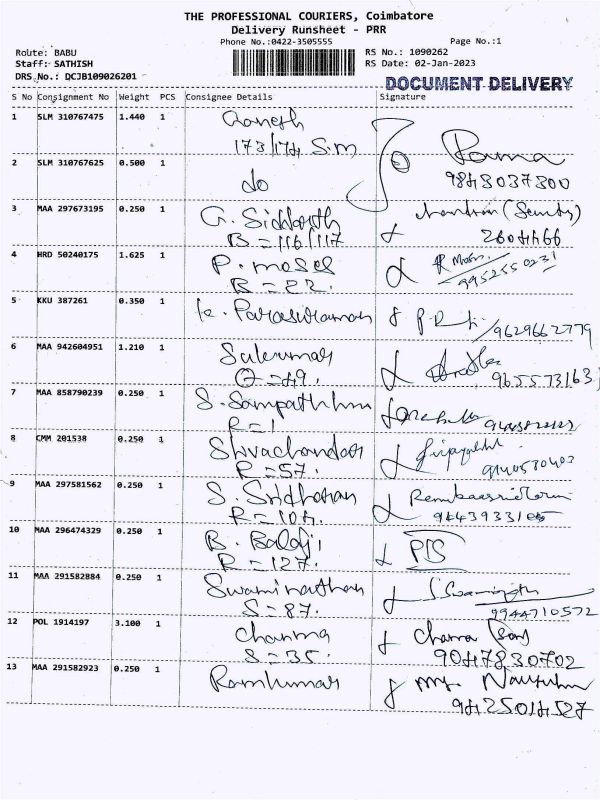 THE PROFESSIONAL COURIERS, Coimbatore
Delivery Runsheet - PRR
Phone No.:0422-3505555
Page No.:1
Route: BABU
Staff: SATHISH
DRS No.: DCJB109026201
RS No.: 1090262
RS Date: 02-Jan-2023
DOCUMENT DELIVERY
S No Consignment No Weight PCS Consignee Details Signature
1 SLM 310767475 1.440 1 Ganesh
173/174 S.M
2 SLM 310767625 0.500 1 do Rama
9843037300
3 MAA 297673195 0.250 1 G. Siddharth
B = 116/117
4 HRD 50240175 1.625 1 P. moses
B = 22.
9952550231
5 KKU 387261 0.350 1 K. Parasuraman
9629662779
6 MAA 942604951 1.210 1 Sukumar
O = 49.
7 MAA 858790239 0.250 1
R = 1
8 CMM 201538 0.250 1 Shivachandar
R = 57.
9 MAA 297581562 0.250 1 S. Sridharan
R = 104.
10 MAA 296474329 0.250 1 B. Balaji
R = 127.
11 MAA 291582884 0.250 1 Swaminathan
S = 87.
9944710572
12 POL 1914197 3.100 1
S = 35.
9047830702
13 MAA 291582923 0.250 1 Ramkumar
9425014527